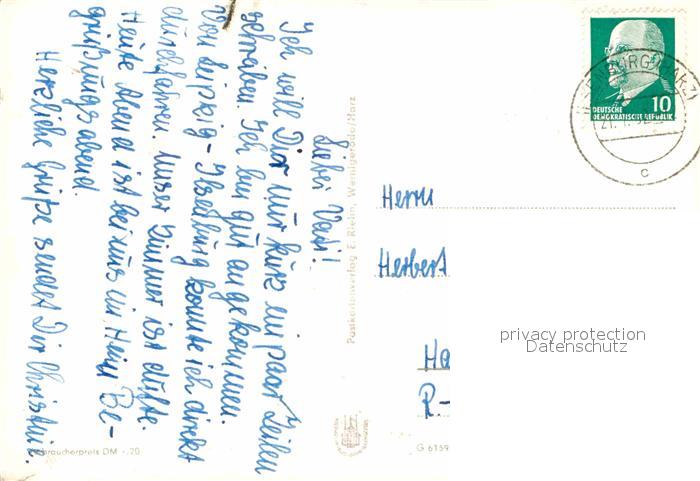 Lieber Vati!
Ich will Dir nur kurz ein paar Zeilen
schreiben. Ich bin gut angekommen.
Von Leipzig - Ilsenburg konnte ich direkt
durchfahren. Unser Zimmer ist dufte.
Heute Abend ist bei uns im Heim Be-
grüßungsabend.
Herzliche Grüße sendet Dir Christin.
Postkartenverlag E. Riehn, Wernigerode/Harz
Verbraucherpreis DM -,20
G 6159
DEUTSCHE
DEMOKRATISCHE REPUBLIK
10
ILSENBURG (HARZ)
c
Herrn
Herbert
Ha
R-
privacy protection
Datenschutz